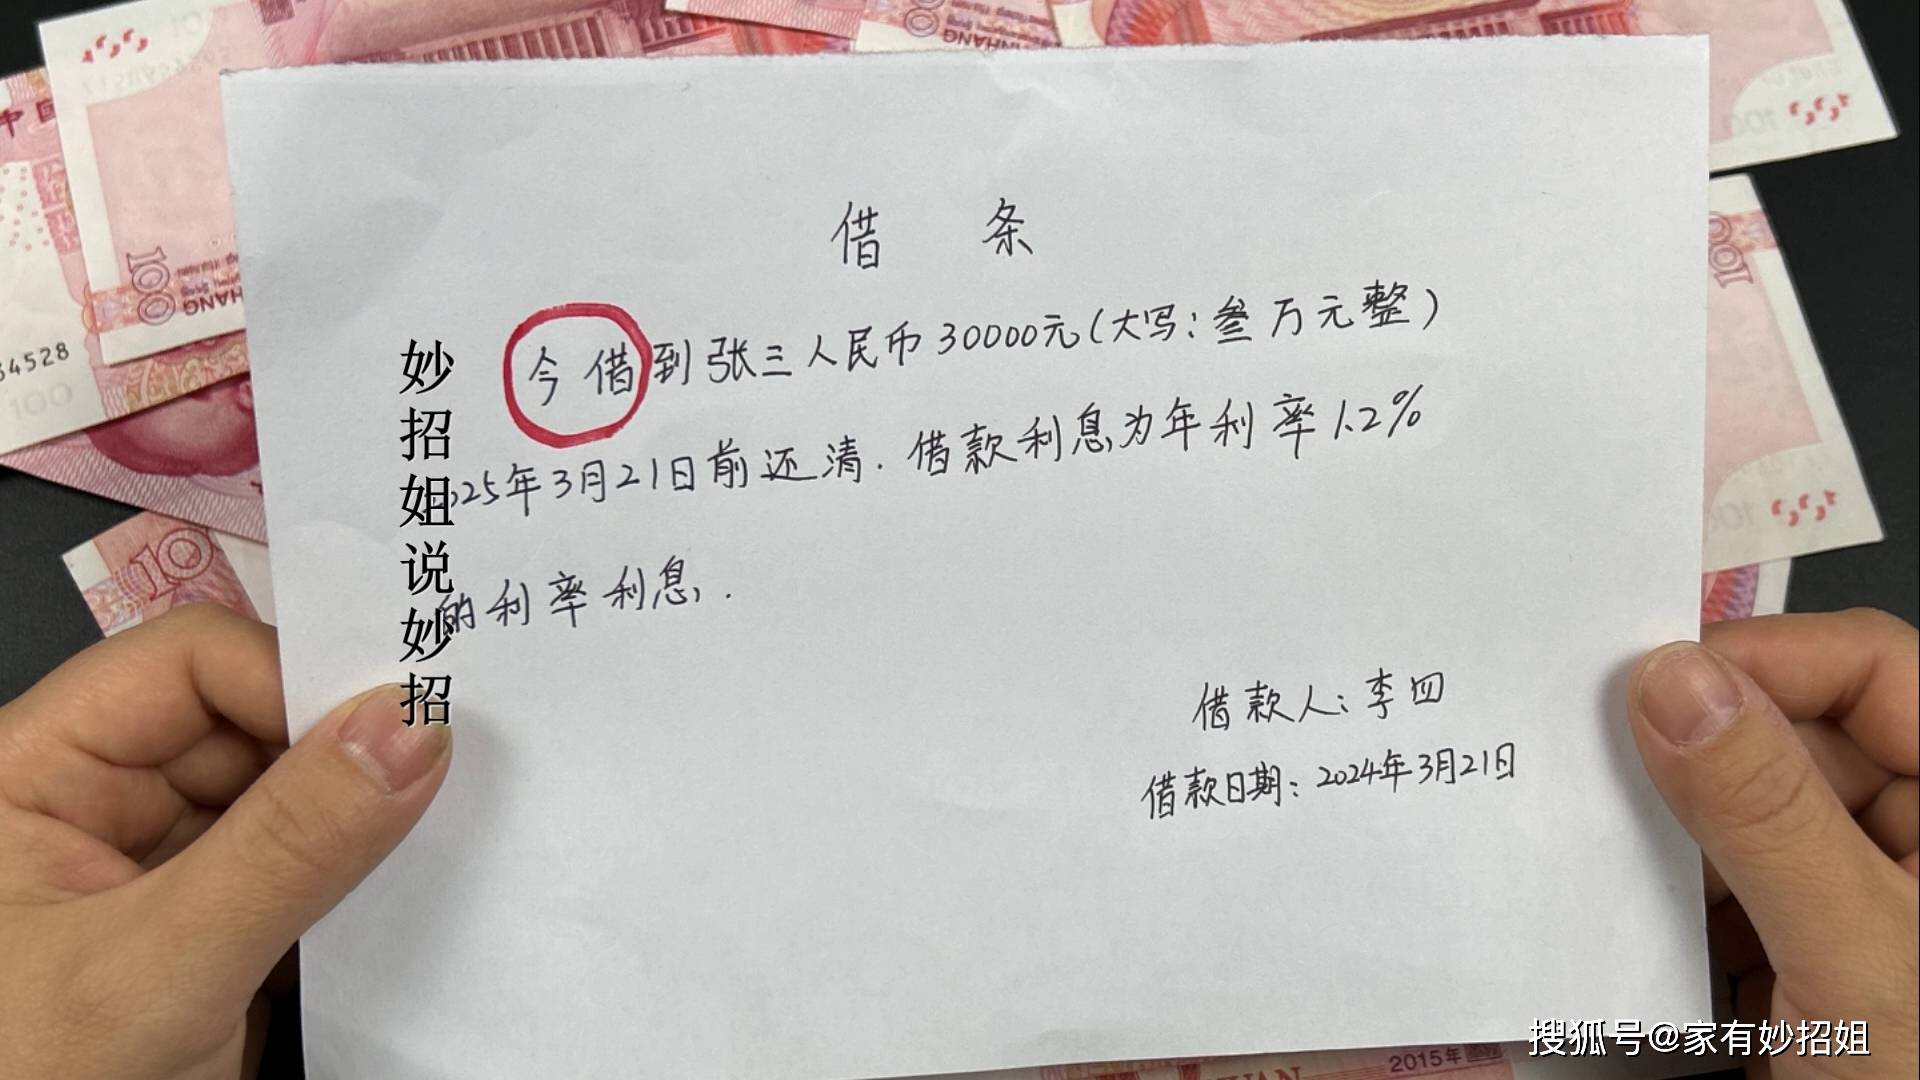 借 条
今借到张三人民币30000元(大写:叁万元整)
2025年3月21日前还清.借款利息为年利率1.2%
的利率利息.
借款人:李四
借款日期:2024年3月21日
妙招姐说妙招
搜狐号@家有妙招姐
中国
100
100
100
34528
100
100
100
2015年